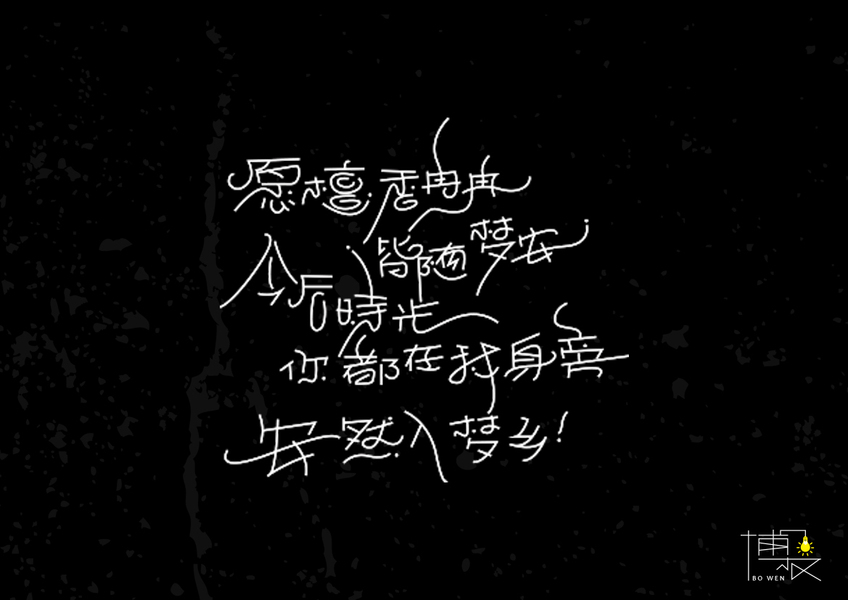 愿檀香冉冉
皆随梦安
今后時光
你都在我身旁
安然入梦乡!
博文
BO WEN